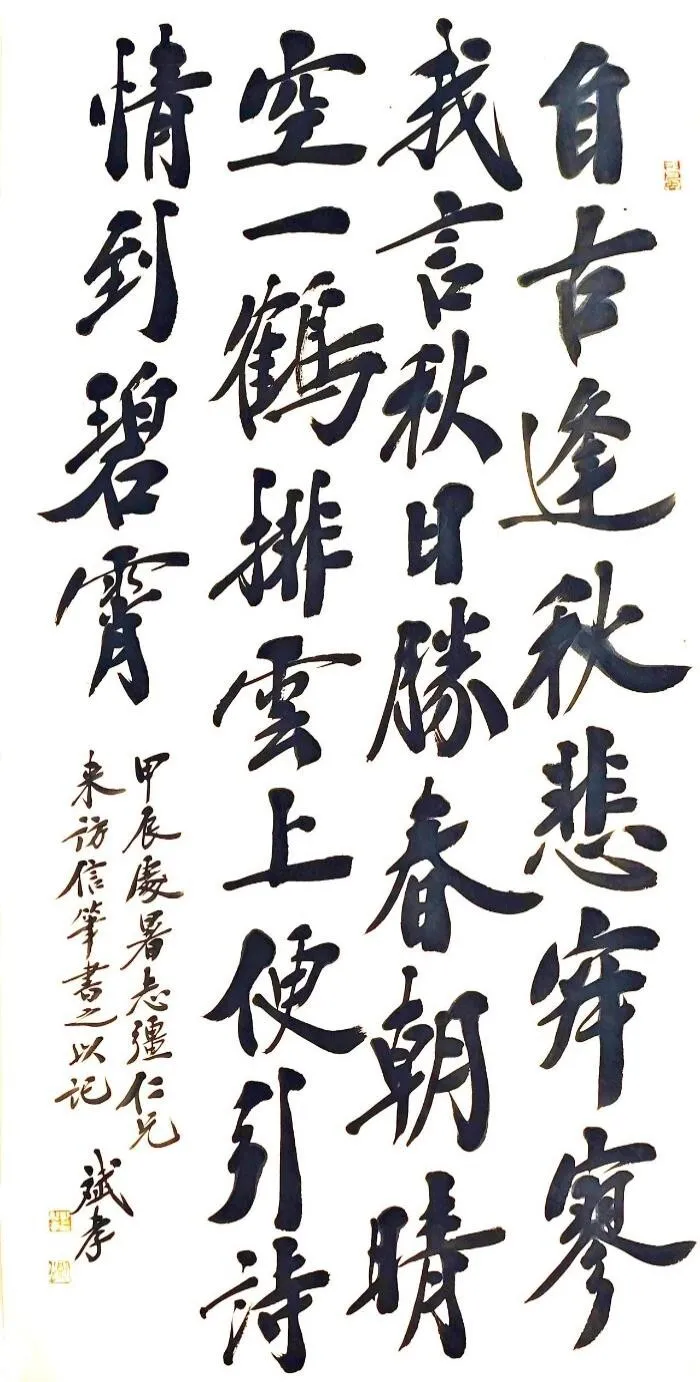 自古逢秋悲寂寥
我言秋日勝春朝晴
空一鶴排雲上便引詩
情到碧霄
甲辰處暑志彊仁兄
来访信筆書之以记
斌孝